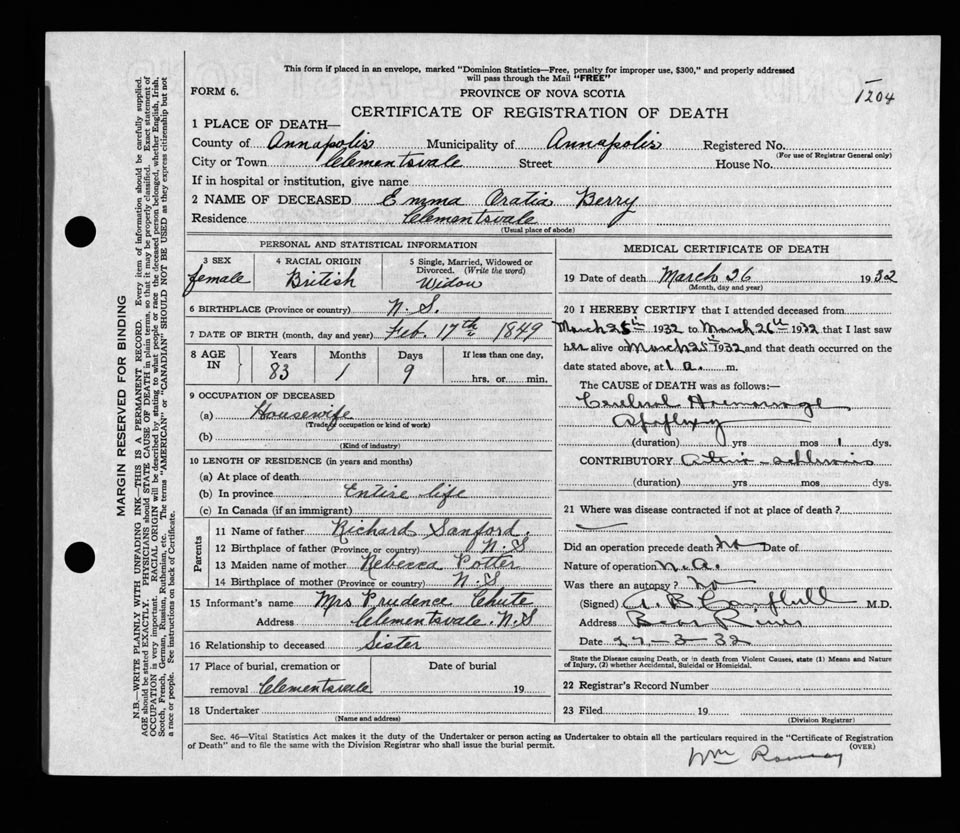 This form if placed in an envelope, marked "Dominion Statistics—Free, penalty for improper use, $300," and properly addressed
will pass through the Mail "FREE"
FORM 6.
PROVINCE OF NOVA SCOTIA
1204
CERTIFICATE OF REGISTRATION OF DEATH
1 PLACE OF DEATH—
County of Annapolis Municipality of Annapolis Registered No.
(For use of Registrar General only)
City or Town Clementsvale Street House No.
If in hospital or institution, give name
2 NAME OF DECEASED Emma Oratia Berry
Residence Clementsvale
(Usual place of abode)
PERSONAL AND STATISTICAL INFORMATION
3 SEX 4 RACIAL ORIGIN 5 Single, Married, Widowed or
Divorced. (Write the word)
female British Widow
6 BIRTHPLACE (Province or country) N.S.
7 DATE OF BIRTH (month, day and year) Feb. 17th 1849
8 AGE IN Years Months Days If less than one day,
83 1 9 hrs. or min.
9 OCCUPATION OF DECEASED
(a) Housewife
(Trade, occupation or kind of work)
(b)
(Kind of industry)
10 LENGTH OF RESIDENCE (in years and months)
(a) At place of death
(b) In province Entire life
(c) In Canada (if an immigrant)
Parents
11 Name of father Richard Sanford.
12 Birthplace of father (Province or country) N.S
13 Maiden name of mother Rebecca Potter
14 Birthplace of mother (Province or country) N.S
15 Informant's name Mrs Prudence Chute
Address Clementsvale. N.S
16 Relationship to deceased Sister
17 Place of burial, cremation or Date of burial
removal Clementsvale 19
18 Undertaker
(Name and address)
MEDICAL CERTIFICATE OF DEATH
19 Date of death March 26 1932
(Month, day and year)
20 I HEREBY CERTIFY that I attended deceased from
March 25th 1932 to March 26th 1932 that I last saw
her alive on March 25th 1932 and that death occurred on the
date stated above, at 1 a. m.
The CAUSE OF DEATH was as follows:—
Cerebral Haemorrage
Apoplexy
(duration) yrs mos 1 dys.
CONTRIBUTORY
(duration) yrs. mos. dys.
21 Where was disease contracted if not at place of death?
Did an operation precede death? no Date of
Nature of operation N.A.
Was there an autopsy? no
(Signed) A. B. Campbell M.D.
Address Bear River
Date 27-3-32
State the Disease causing Death, or in death from Violent Causes, state (1) Means and Nature
of Injury, (2) whether Accidental, Suicidal or Homicidal.
22 Registrar's Record Number
23 Filed 19
(Division Registrar)
Sec. 46—Vital Statistics Act makes it the duty of the Undertaker or person acting as Undertaker to obtain all the particulars required in the "Certificate of Registration
of Death" and to file the same with the Division Registrar who shall issue the burial permit.
(OVER)
Wm Ramsay
MARGIN RESERVED FOR BINDING
N.B.—WRITE PLAINLY WITH UNFADING INK—THIS IS A PERMANENT RECORD. Every item of information should be carefully supplied.
AGE should be stated EXACTLY. PHYSICIANS should STATE CAUSE OF DEATH in plain terms, so that it may be properly classified. Exact statement of
OCCUPATION is very important. RACIAL ORIGIN will be described by stating to what people or race the deceased person belonged, whether English, Irish,
Scotch, French, German, Russian, Ruthenian, etc. The terms "AMERICAN" or "CANADIAN" SHOULD NOT BE USED as they express citizenship but not
a race or people. See instructions on back of Certificate.